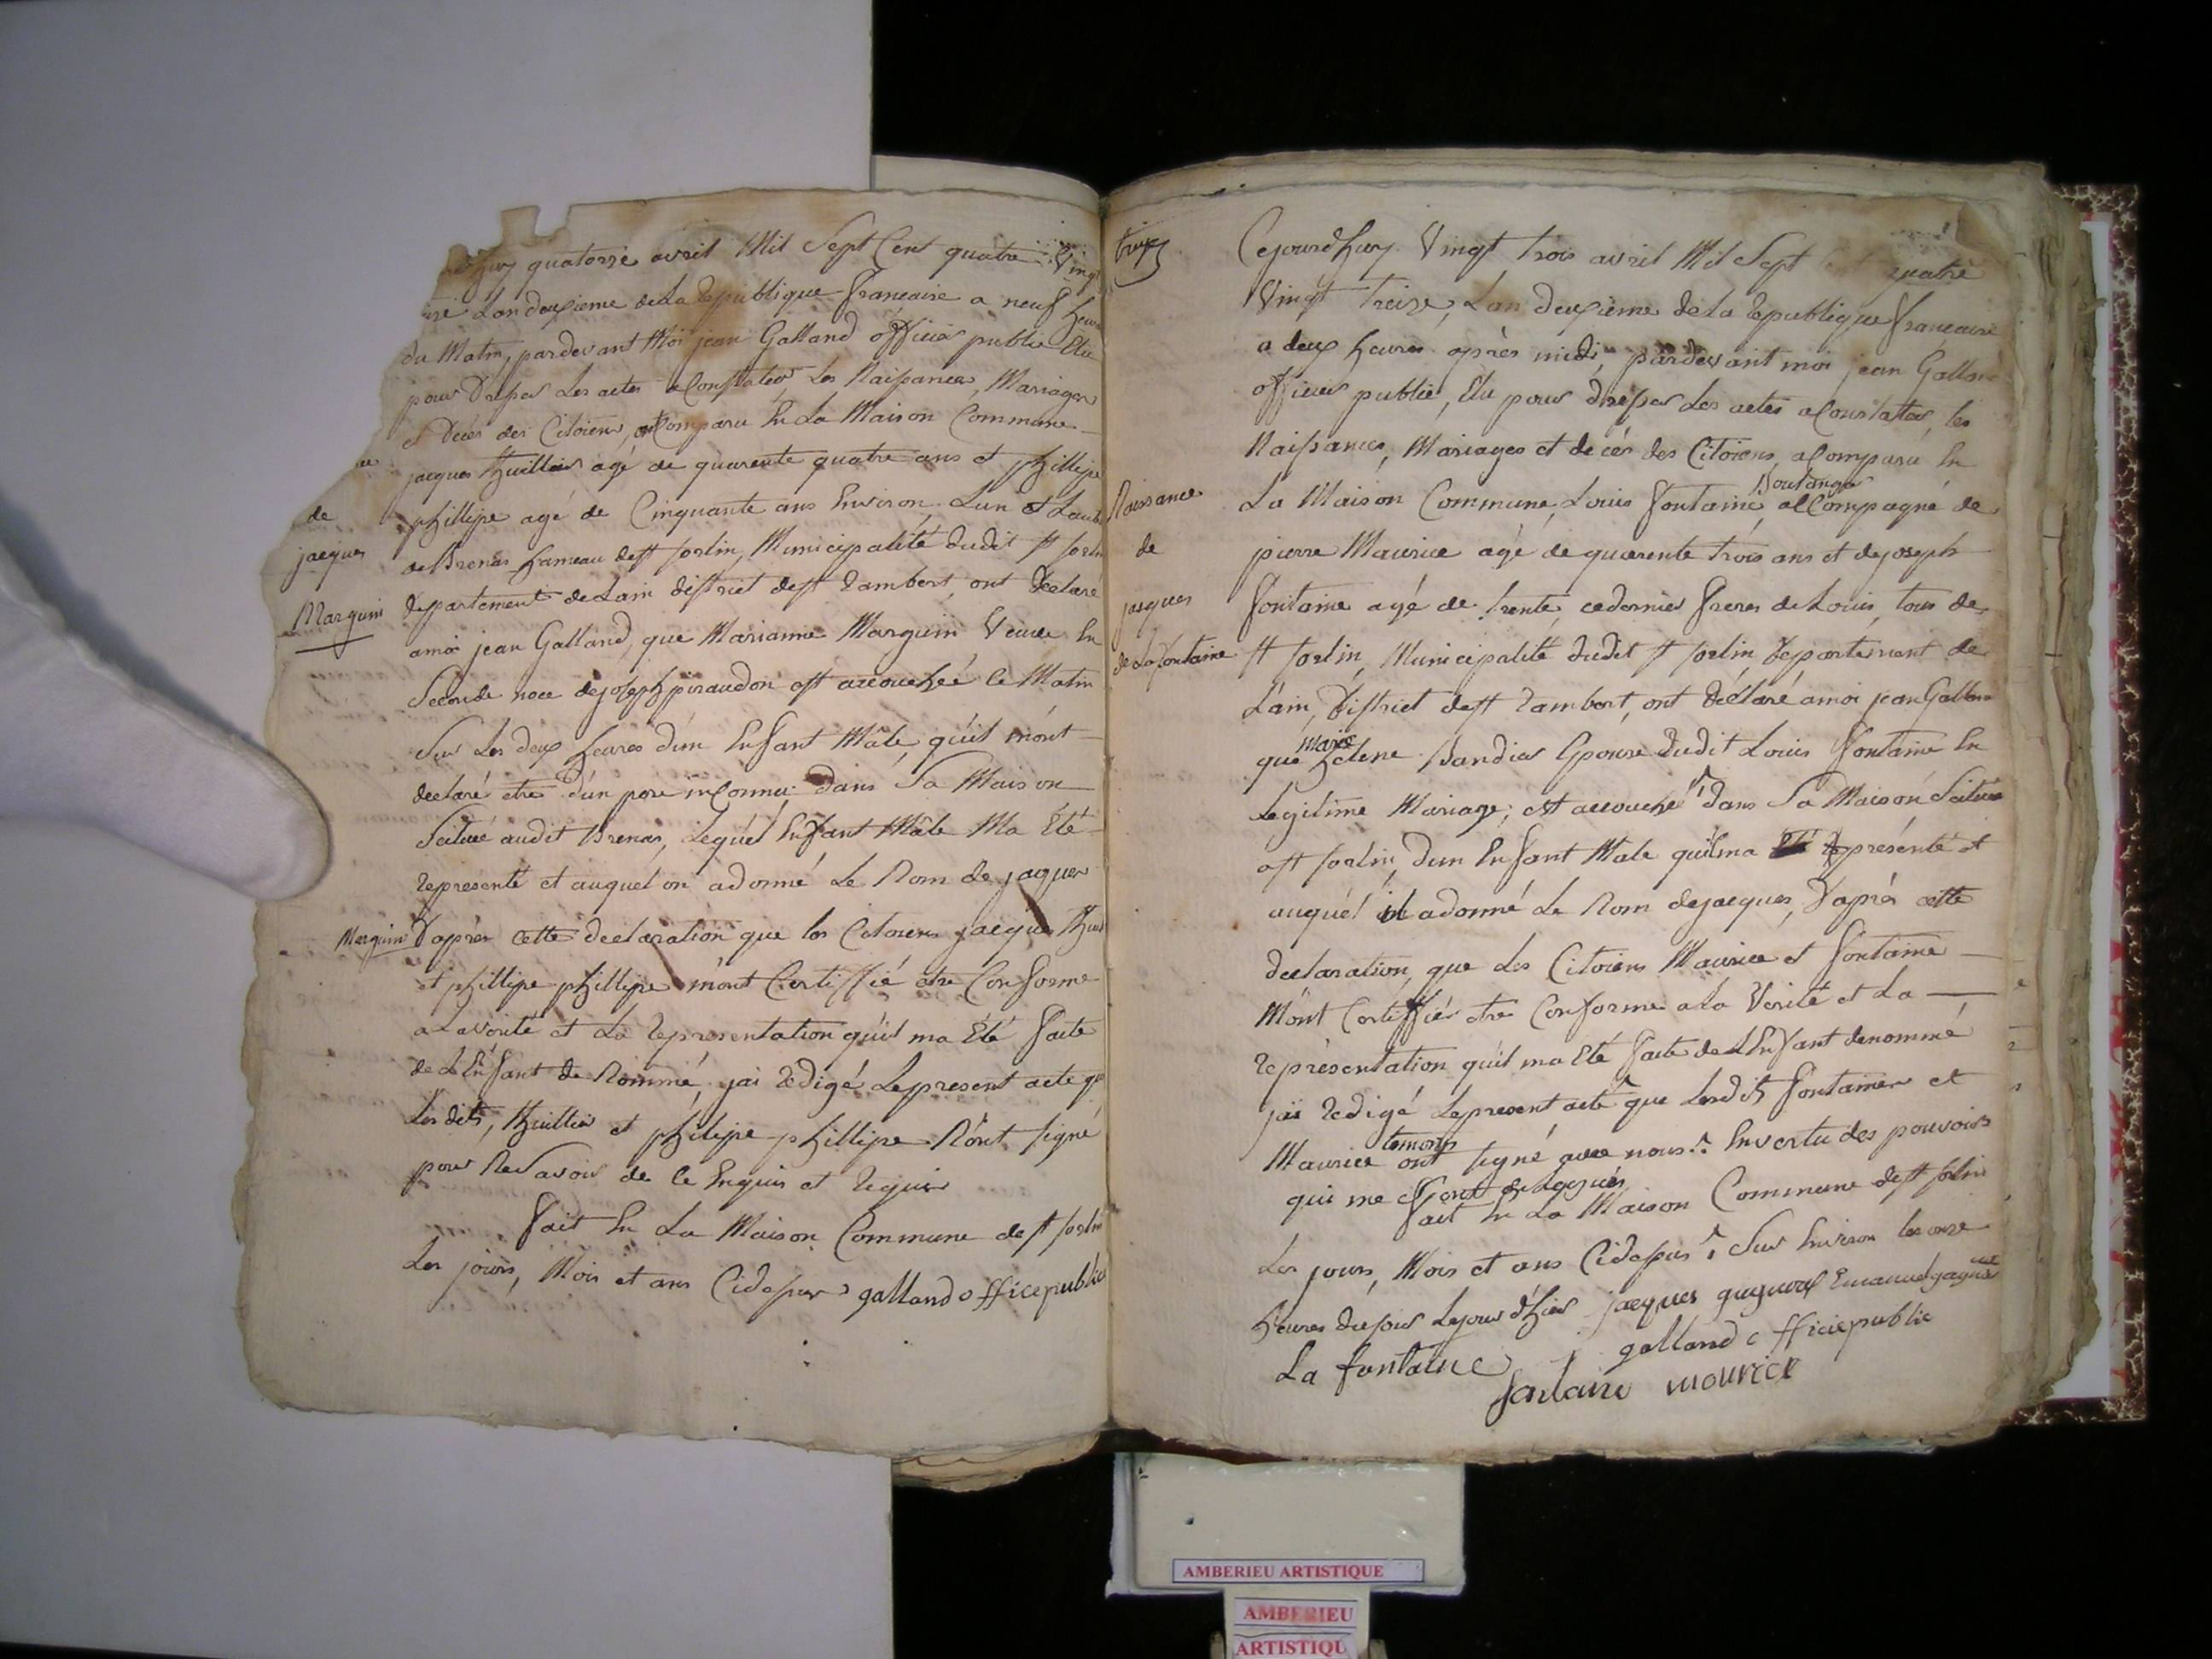 quatorze avril Mil Sept Cent quatre Vingt
Lan deuxieme de La Republique francaise a neuf heures
du Matin, pardevant Moi jean Galland officier public Elu
pour Dresser Les actes a Constater Les Naissances, Mariages
et Décès des Citoiens, Comparu En La Maison Commune
jacques thuillier agé de quarente quatre ans et phillipe
de
phillipe agé de Cinquante ans Environ Lun et Lautre
jacques
de Brenas hameau de st sorlin, Municipalité dudit st sorlin
Marguin
département de Lain district de st Rambert, ont Déclaré
amoi jean Galland, que Marianne Marguin Veuve En
Seconde noce de joseph piraudon est accouchée Ce Matin
Sur Les deux heures dun Enfant Mâle, qu'il m'ont
declaré etre d'un pere inconnu dans Sa Maison
Scituée audit Brenas, Lequel Enfant Mâle Ma Eté
Représenté et auquel on adonné Le Nom de jaques
Marguin
D'après cette declaration que les Citoiens jacques
et phillipe phillipe m'ont Certiffié etre Conforme
a Laverité et La Représentation qu'il ma Eté faite
de LEnfant de Nommé, jai Rédigé Le present acte que
Les dits, thuillier et philipe phillipe N'ont signé
pour Ne Savoir de Ce Enquis et Requis
fait En La Maison Commune de st sorlin
Les jours, Mois et ans Cidessus galland officepublic
Cejourdhuy Vingt trois avril Mil Sept quatre
Vingt Treize, Lan deuxieme de la Republique francaise
a deux heures après midi, pardevant moi jean Galland
officier public, Elu pour dresser Les actes a Constater, les
Naissances, Mariages et décés des Citoiens, a Comparu En
Naissance
La Maison Commune, Louis fontaine acCompagné de
de
pierre Maurice agé de quarente trois ans et de joseph
jacques
fontaine agé de trente, cedernier freres de Louis, tous de
de la fontaine
st sorlin, Municipalité dudit st sorlin département de
Lain, District de st Rambert, ont Déclaré amoi jean Galland
que marie helene Epouse dudit Louis fontaine En
Legitime Mariage; est accouché dans Sa Maison Scituée
a st sorlin, dun Enfant Male quil ma Représenté et
auquel il adonné Le Nom de jacques, D'après cette
declaration, que Les Citoiens Maurice et fontaine
M'ont Certiffiés etre Conforme a La Verité et La
Représentation qu'il ma Eté faite de LEnfant denommé
jai Redigé Le present acte que Lesdits fontaines et
Maurice temoins ont signé avec nous. En vertu des pouvoirs
qui me sont delegués
fait En La Maison Commune de st sorlin
Les jours, Mois et ans Cidessus Sur Environ les onze
heures du soir Le jour d'hier jacques Emanuel
galland officiepublic
La fontaine
fontaine mourice
AMBERIEU ARTISTIQUE
AMBERIEU
ARTISTIQU